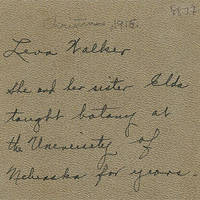 Christmas, 1915.
Leva Walker
She and her sister Elda
taught botany at
the University of
Nebraska for years.